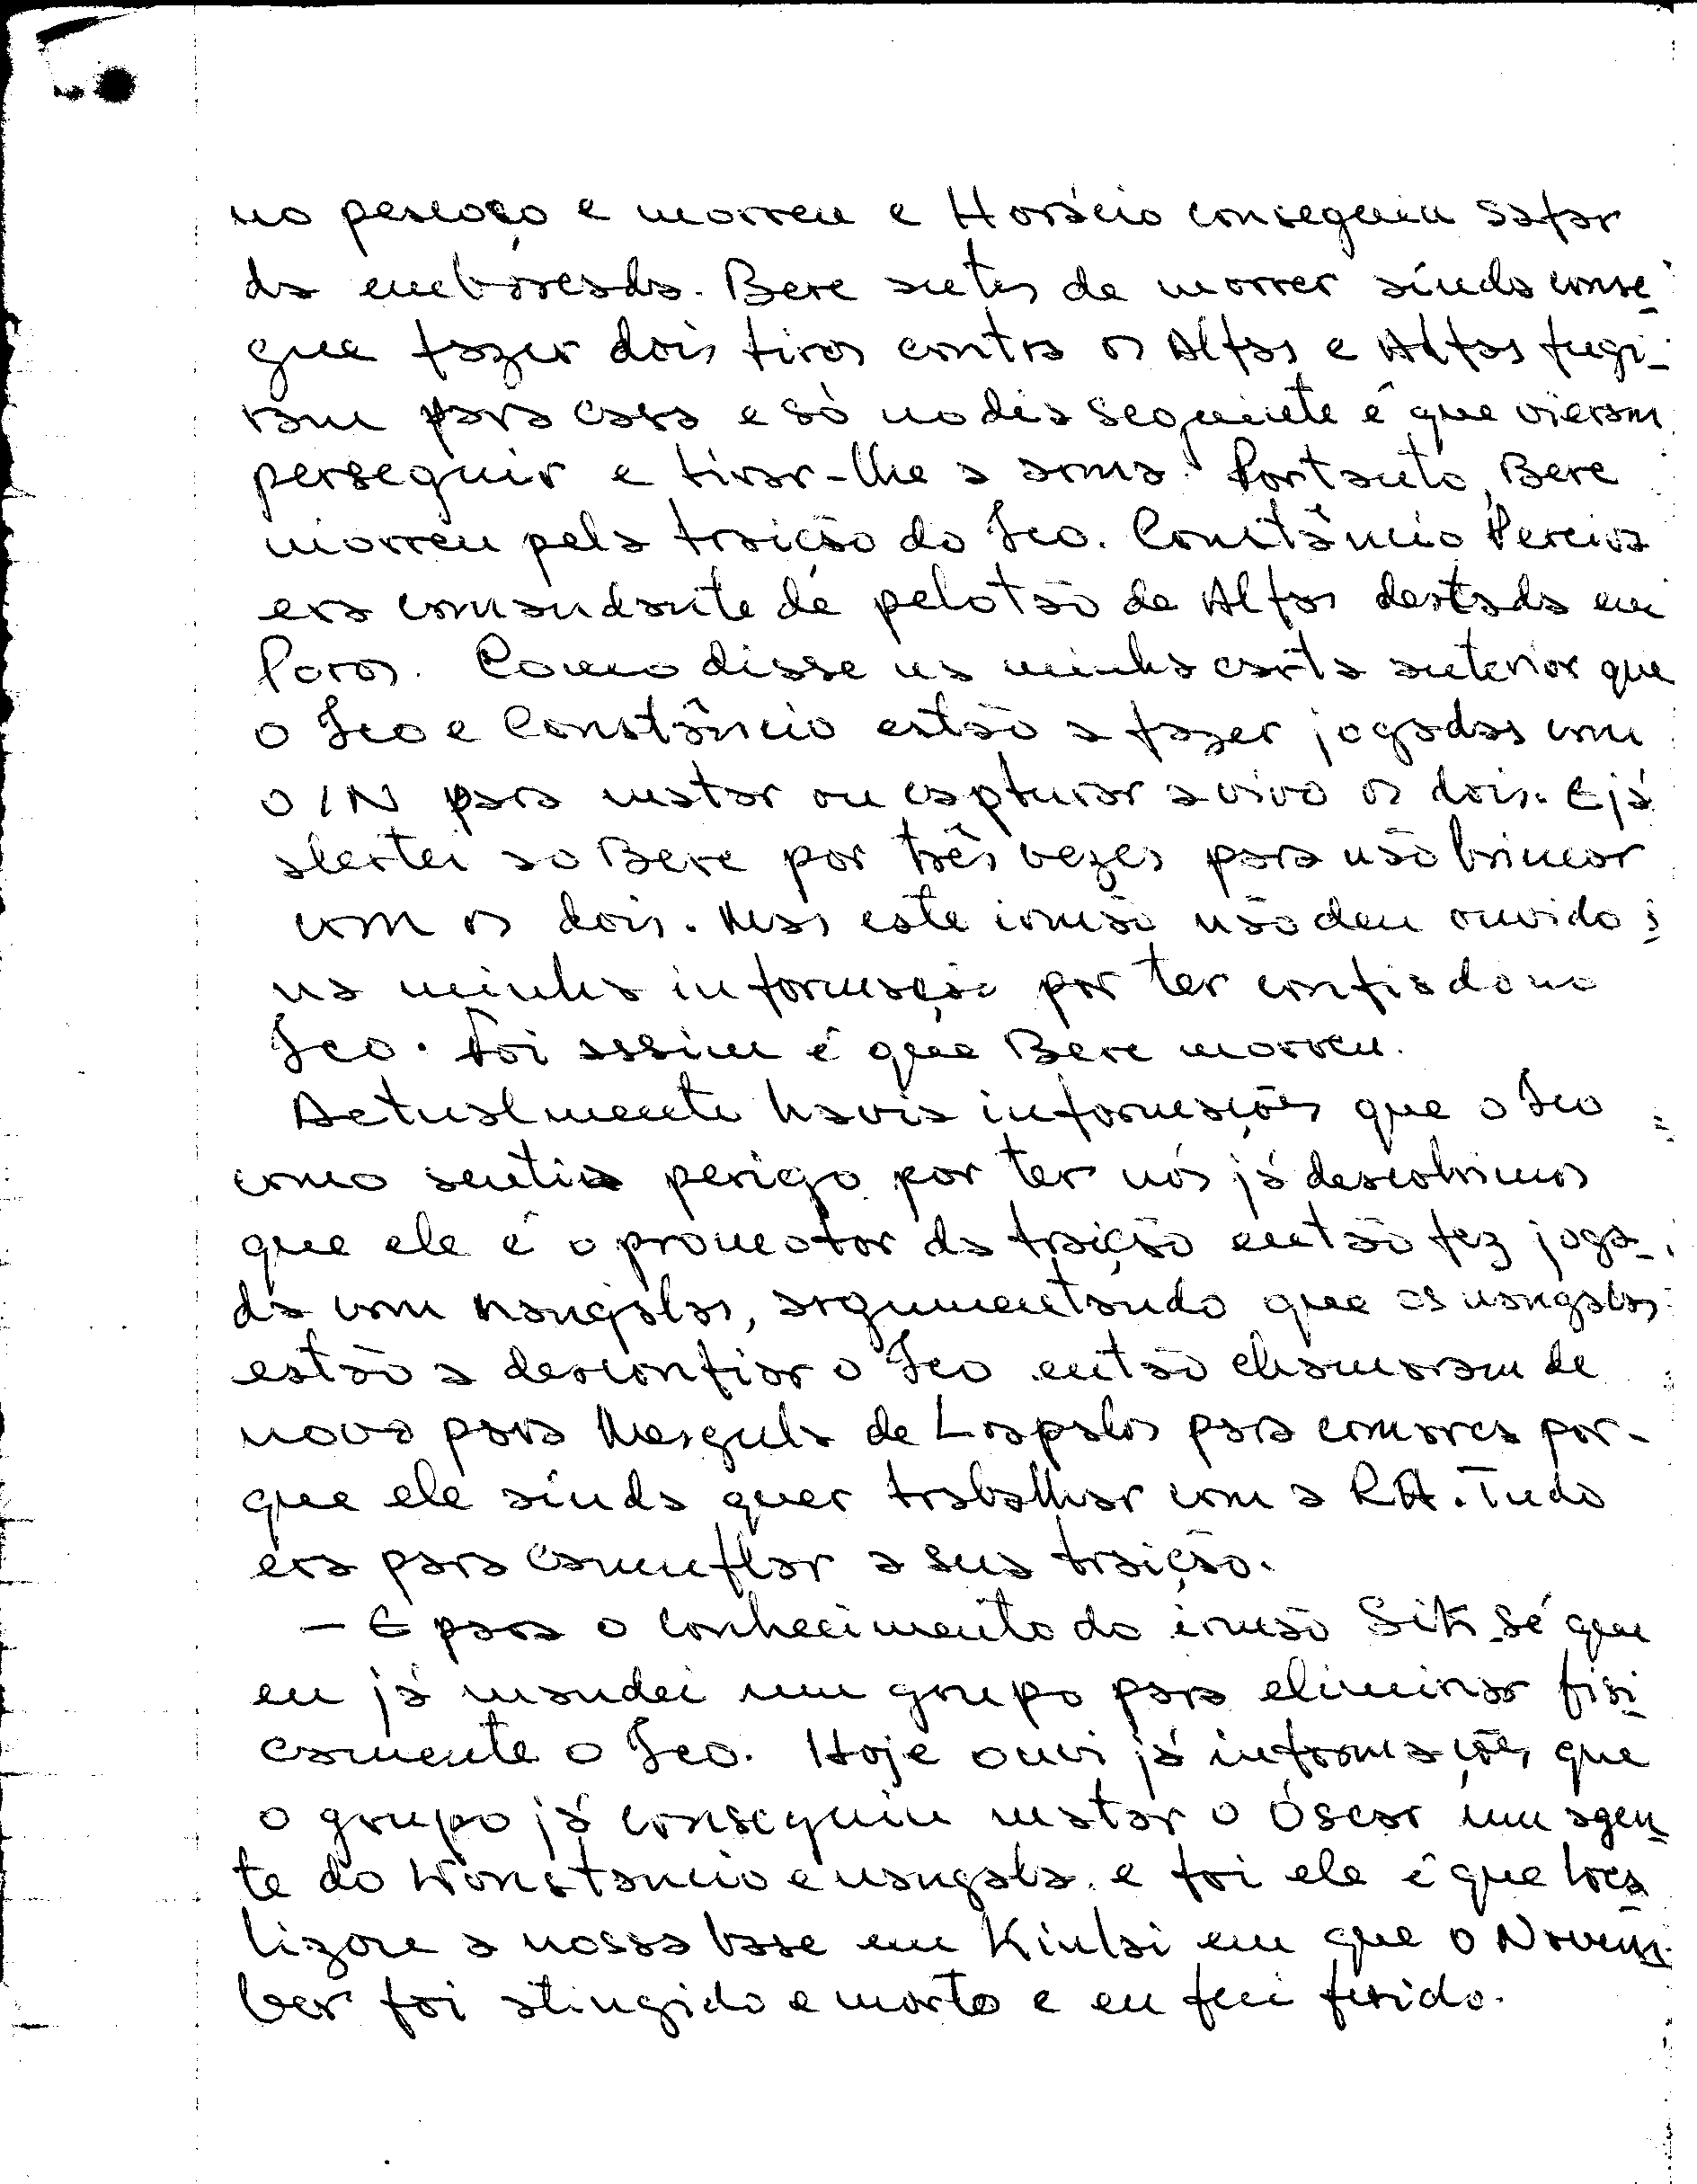 no pescoço e morreu e Horácio conseguiu safar
da emboscada. Bere antes de morrer ainda conse-
gue fazer dois tiros contra os Alfas e Alfas fugi-
ram para casa e só no dia seguinte é que vieram
perseguir e tirar-lhe a arma. Portanto, Bere
morreu pela traição do Jco. Constâncio Pereira
era comandante de pelotão de Alfas destada em
Poros. Como disse na minha carta anterior que
o Jco e Constâncio estão a fazer jogadas com
o IN para matar ou capturar a vivo os dois. E já
alertei ao Bere por três vezes para não brincar
com os dois. Mas este irmão não deu ouvido
na minha informação por ter confiado no
Jco. Foi assim é que Bere morreu.
Actualmente havia informações que o Jco
como sentia perigo por ter nós já descobrimos
que ele é o promotor da traição então fez joga-
da com nangalas, argumentando que os nangalas
estão a desconfiar o Jco então chamaram de
novo para Mesgula de Lospalos para comarca por-
que ele ainda quer trabalhar com a RA. Tudo
era para camuflar a sua traição.
- E para o conhecimento do irmão Sik-sé que
eu já mandei um grupo para eliminar fisi-
camente o Jco. Hoje ouvi já informações que
o grupo já conseguiu matar o Óscar um agen-
te do Konstancio e nangala e foi ele é que loca-
lizou a nossa base em Kiulai em que o Novem-
ber foi atingido e morto e eu fui ferido.